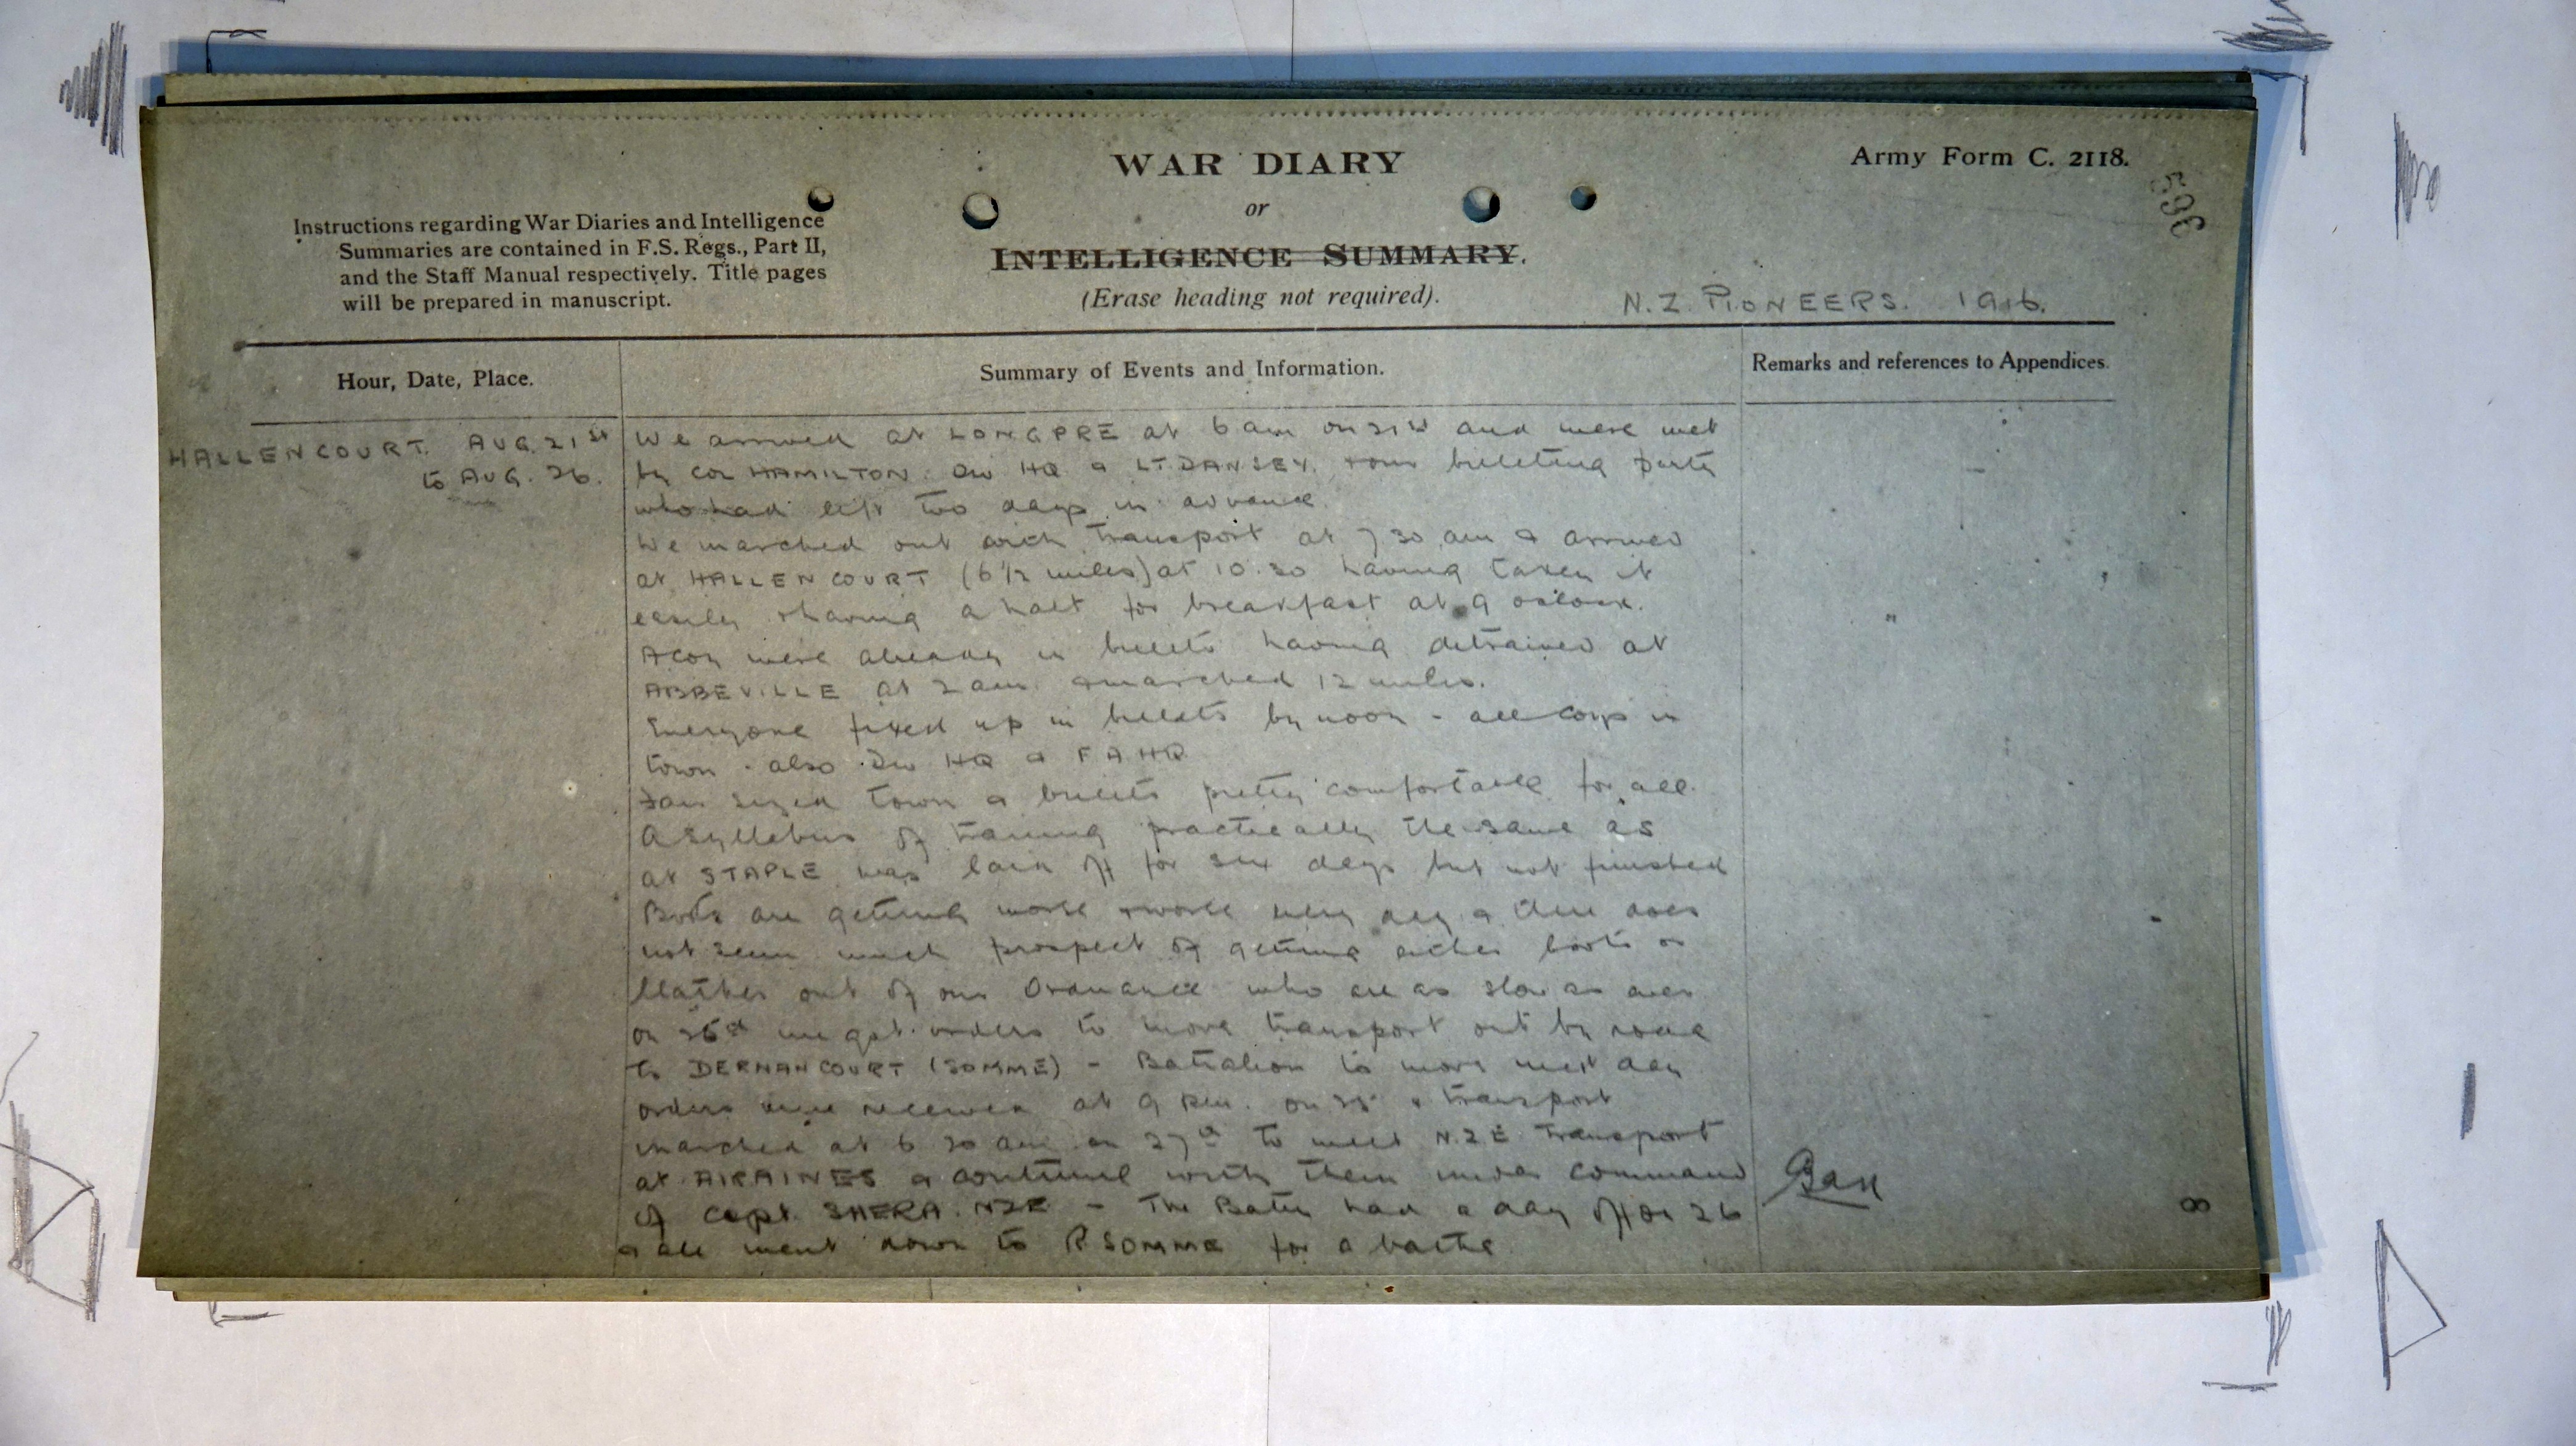 WAR DIARY
or
INTELLIGENCE SUMMARY.
(Erase heading not required).
Army Form C. 2118.
365
Instructions regarding War Diaries and Intelligence
Summaries are contained in F.S. Regs., Part II,
and the Staff Manual respectively. Title pages
will be prepared in manuscript.
N.Z. PIONEERS. 1916.
Hour, Date, Place.
Summary of Events and Information.
Remarks and references to Appendices.
HALLENCOURT. AUG. 21st
to AUG. 26.
We arrived at LONGPRE at 6 am on 21st and were met
by COL HAMILTON. Div HQ & LT. DANSEY. & our billeting party
who had left two days in advance.
We marched out with transport at 7 30 am & arrived
at HALLENCOURT (6 1/2 miles) at 10.30 having taken it
easily & having a halt for breakfast at 9 oclock.
A Coy were already in billets having detrained at
ABBEVILLE at 2 am & marched 12 miles.
Everyone fixed up in billets by noon - all Coys in
town - also Div HQ & F A HQ
Fair sized town & billets pretty comfortable for all.
A syllabus of training practically the same as
at STAPLE was laid off for six days but not finished
Boots are getting worse & worse every day & there does
not seem much prospect of getting either boots or
leather out of our Ordnance who are as slow as ever
on 25th we got orders to move transport out by road
to DERNANCOURT (SOMME) - Battalion to move next day
orders were received at 9 pm. on 25 & transport
marched at 6 30 am on 27th to meet N.Z.E Transport
at AIRAINES & continue with them under command
of Capt. SHERA. NZE - The Battn had a day off on 26
& all went down to R. SOMME for a bathe
8